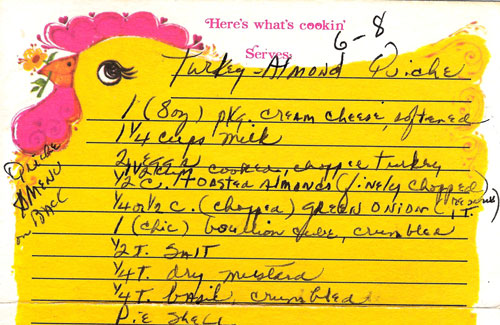 Here's what's cookin'
Turkey-Almond Quiche
Serves 6-8
1 (8oz) pkg. cream cheese, softened
1 1/4 cups milk
2 eggs
1 1/2 cups cooked, chopped turkey
1/2 c. toasted almonds (finely chopped)
1/4 or 1/2 c. (chopped) green onion (reserve 1 T.
1 (chic) bouillon cube, crumbled
1/2 t. salt
1/4 t. dry mustard
1/4 t. basil, crumbled
Pie shell
Quiche
Menu
on Back